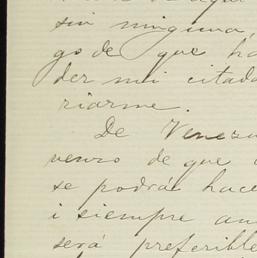 sin ninguna
go de que ha
der mi citada
riarme.
De Venezu
venzo de que
se podrá hace
i siempre an
será preferible